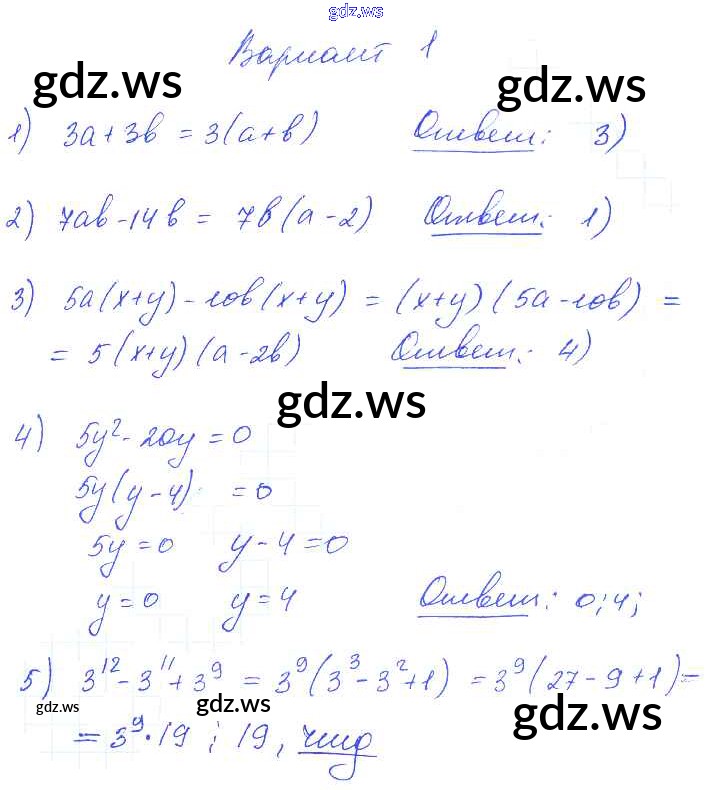 gdz.ws
Вариант 1
gdz.ws gdz.ws
1) 3a+3b = 3(a+b) Ответ: 3)
2) 7ab-14b = 7b(a-2) Ответ: 1)
3) 5a(x+y)-10b(x+y) = (x+y)(5a-10b) =
= 5(x+y)(a-2b) Ответ: 4)
gdz.ws
4) 5y²-20y=0
5y(y-4) =0
5y=0 y-4=0
y=0 y=4 Ответ: 0;4;
5) 3¹²-3¹¹+3⁹ = 3⁹(3³-3²+1) = 3⁹(27-9+1)=
gdz.ws gdz.ws gdz.ws
= 3⁹·19 ⋮ 19, чтд